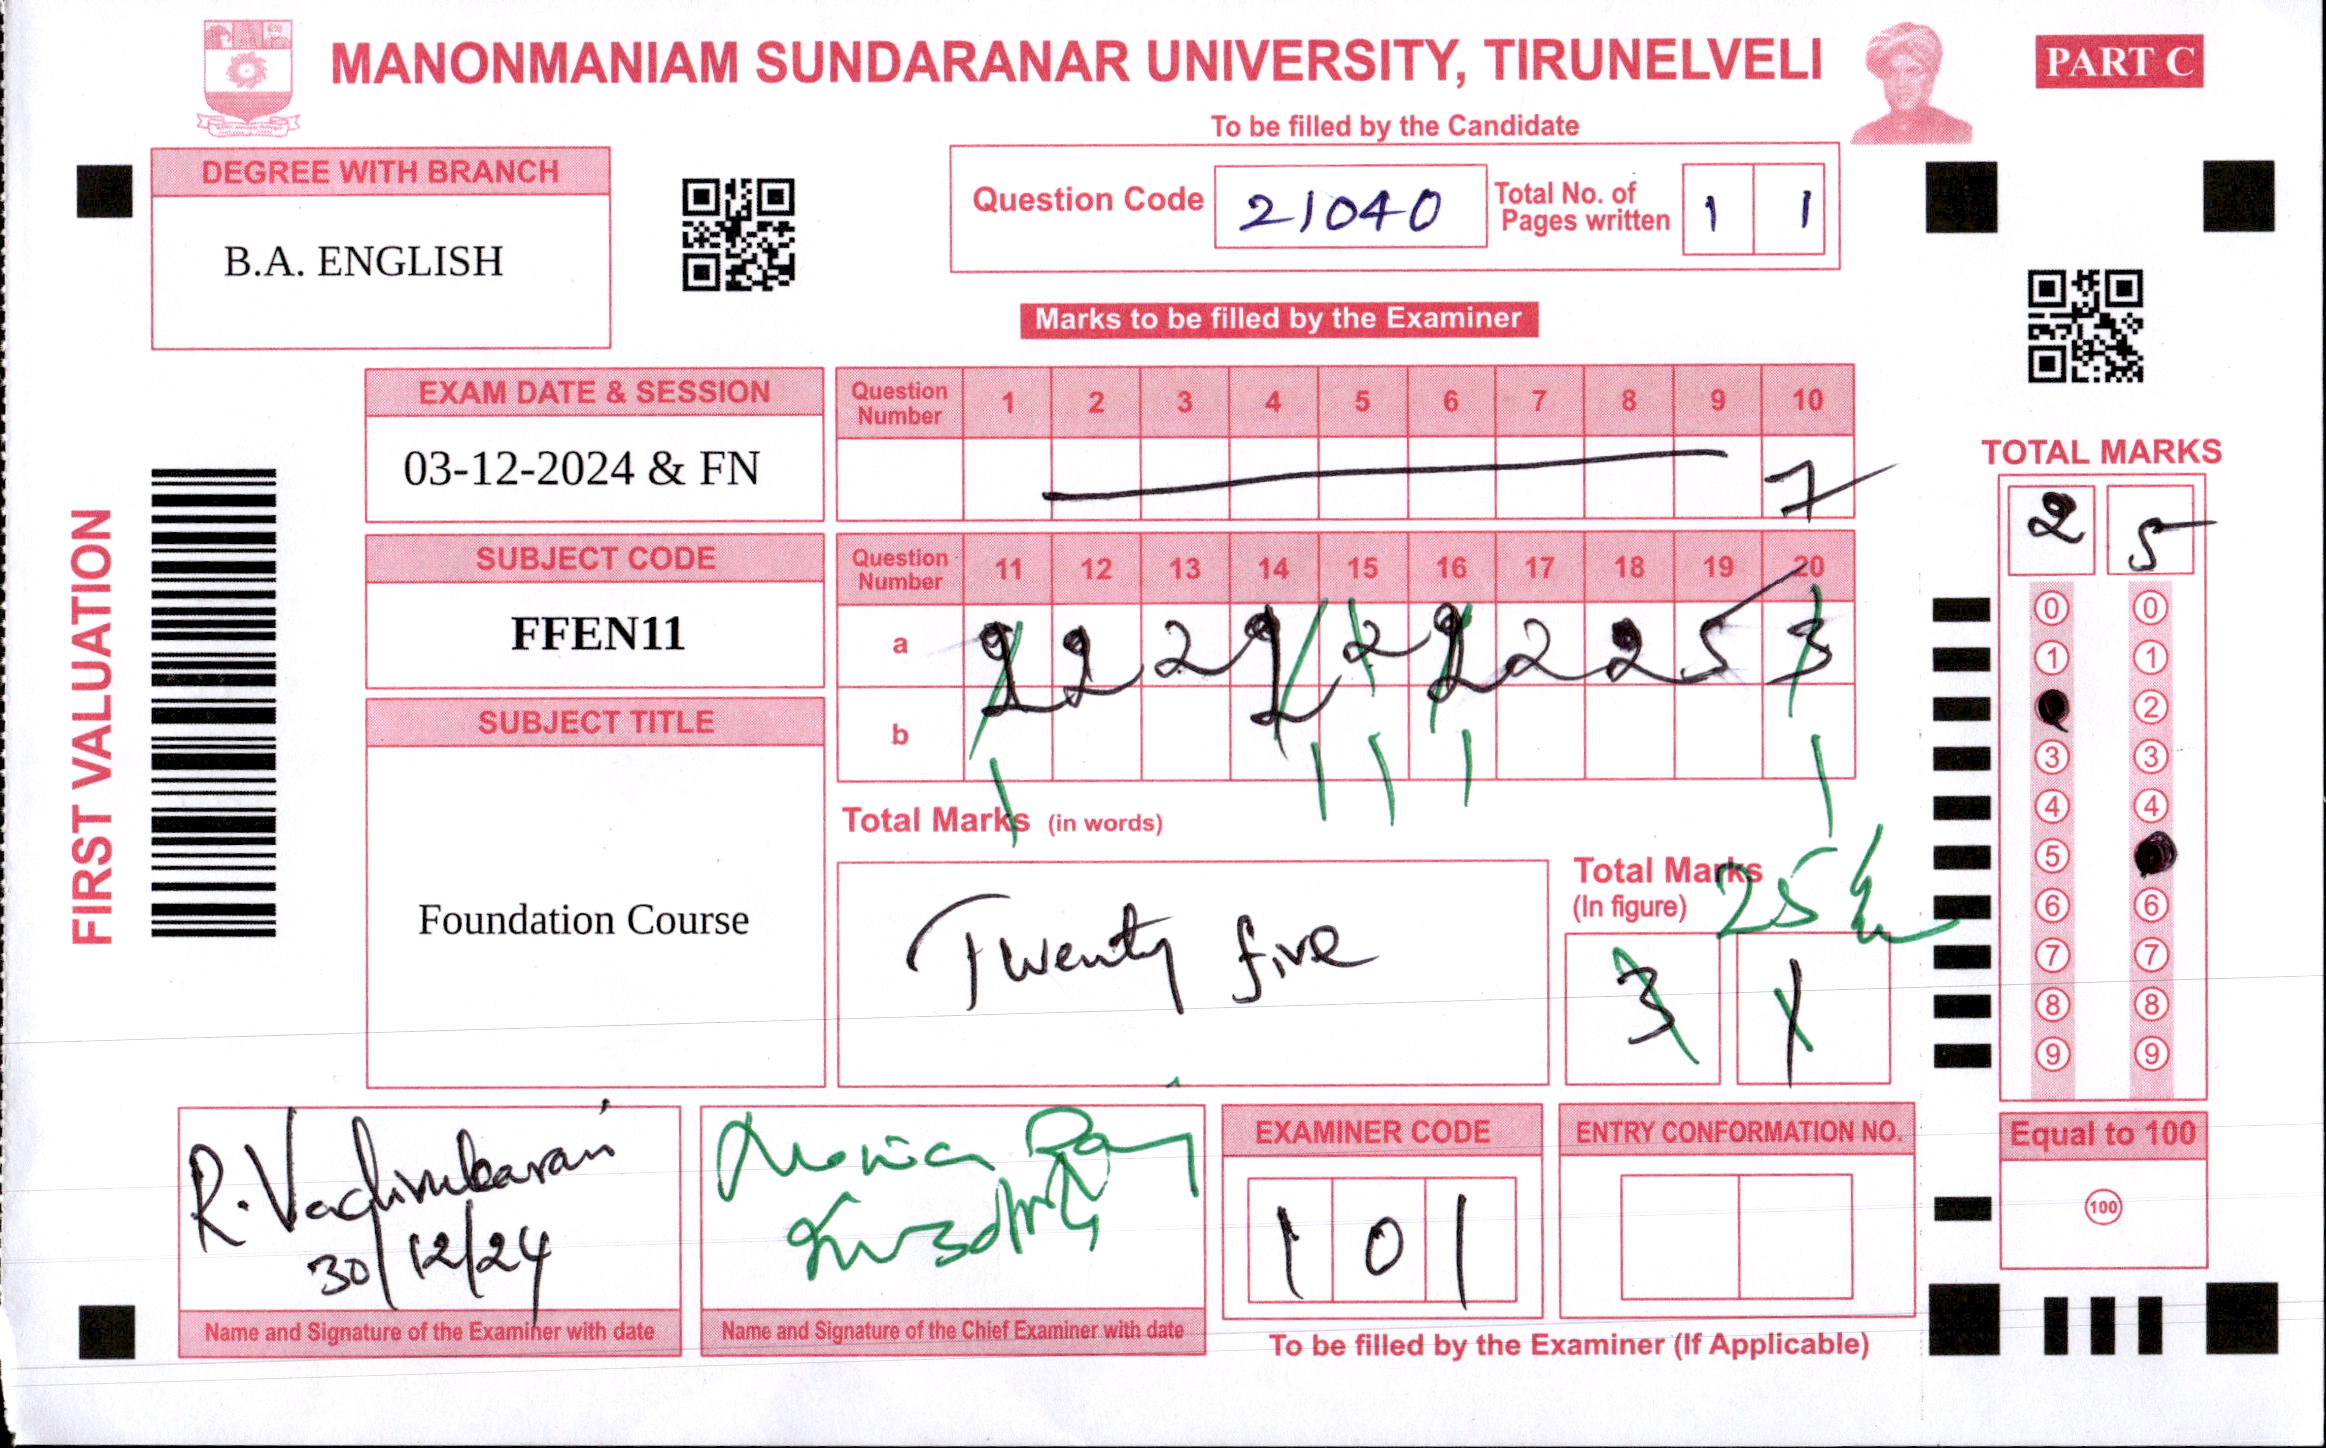 MANONMANIAM SUNDARANAR UNIVERSITY, TIRUNELVELI
PART C
To be filled by the Candidate
DEGREE WITH BRANCH
B.A. ENGLISH
Question Code 21040 Total No. of Pages written 1 1
Marks to be filled by the Examiner
EXAM DATE & SESSION
03-12-2024 & FN
Question Number 1 2 3 4 5 6 7 8 9 10
7
SUBJECT CODE
FFEN11
Question Number 11 12 13 14 15 16 17 18 19 20
a 2 2 2 2 2 2 2 2 5 3
b
1 1 1 1 1
SUBJECT TITLE
Foundation Course
Total Marks (in words)
Twenty five
Total Marks (In figure)
25
3 1
FIRST VALUATION
TOTAL MARKS
2 5
0 0
1 1
2
3 3
4 4
5
6 6
7 7
8 8
9 9
Equal to 100
100
R.
30/12/24
Name and Signature of the Examiner with date
Name and Signature of the Chief Examiner with date
EXAMINER CODE
1 0 1
ENTRY CONFORMATION NO.
To be filled by the Examiner (If Applicable)